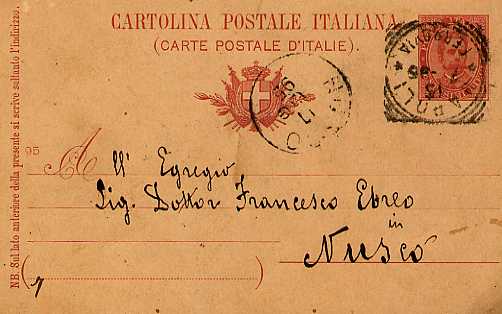 CARTOLINA POSTALE ITALIANA
(CARTE POSTALE D'ITALIE).
NAPOLI
FERROVIA
NUSCO
95
All' Egregio
Sig. Dottor Francesco Ebreo
in
Nusco
NB. Sul lato anteriore della presente si scrive soltanto l'indirizzo.